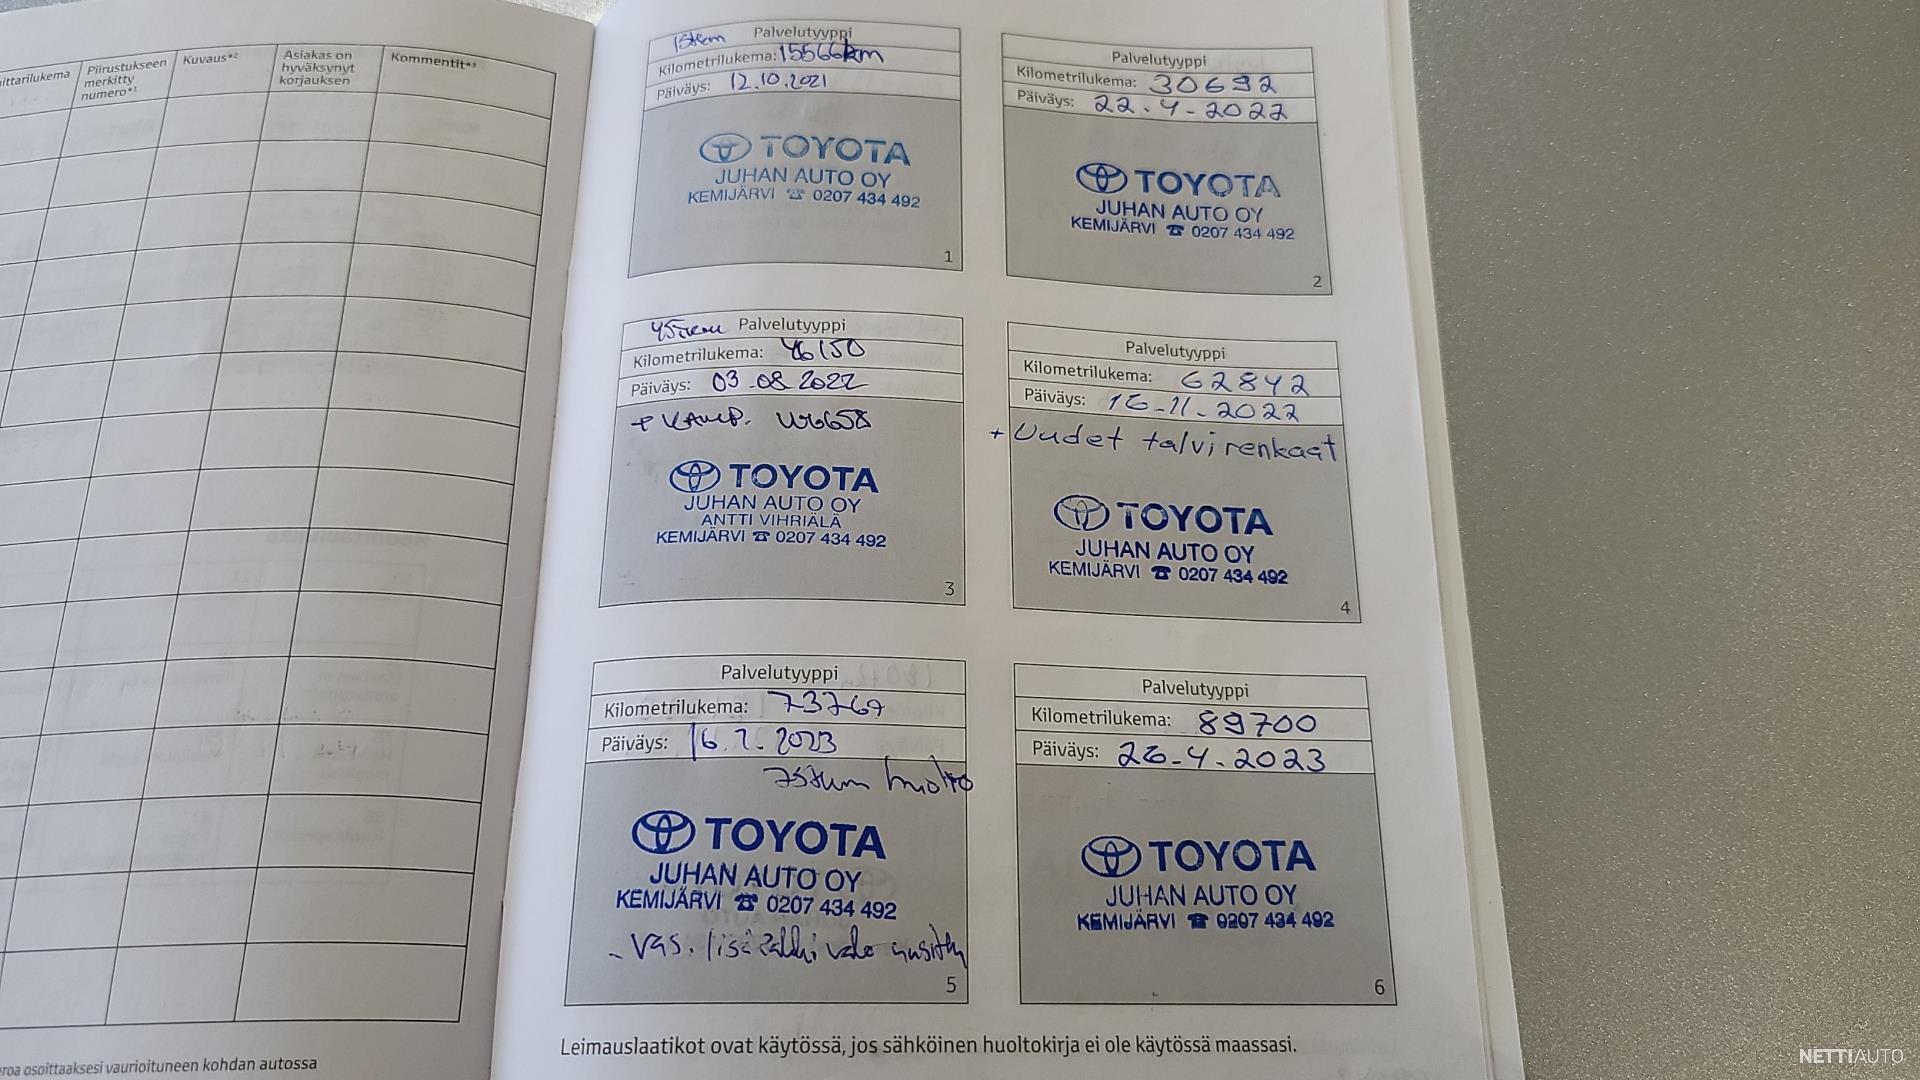 ittarilukema
Piirustukseen
merkitty
numero*¹
Kuvaus*²
Asiakas on
hyväksynyt
korjauksen
Kommentit*³
eroa osoittaaksesi vaurioituneen kohdan autossa
15tkm Palvelutyyppi
Kilometrilukema: 15566km
Päiväys: 12.10.2021
TOYOTA
JUHAN AUTO OY
KEMIJÄRVI ☎ 0207 434 492
1
Palvelutyyppi
Kilometrilukema: 30692
Päiväys: 22.4-2022
TOYOTA
JUHAN AUTO OY
KEMIJÄRVI ☎ 0207 434 492
2
45tkm Palvelutyyppi
Kilometrilukema: 46150
Päiväys: 03.08.2022
+ KAMP.
TOYOTA
JUHAN AUTO OY
ANTTI VIHRIÄLÄ
KEMIJÄRVI ☎ 0207 434 492
3
Palvelutyyppi
Kilometrilukema: 62842
Päiväys: 16-11-2022
+ Uudet talvirenkaat
TOYOTA
JUHAN AUTO OY
KEMIJÄRVI ☎ 0207 434 492
4
Palvelutyyppi
Kilometrilukema: 73767
Päiväys: 16.2.2023
75tkm huolto
TOYOTA
JUHAN AUTO OY
KEMIJÄRVI ☎ 0207 434 492
- Vas. lisä valo uusittu
5
Palvelutyyppi
Kilometrilukema: 89700
Päiväys: 26-4-2023
TOYOTA
JUHAN AUTO OY
KEMIJÄRVI ☎ 0207 434 492
6
Leimauslaatikot ovat käytössä, jos sähköinen huoltokirja ei ole käytössä maassasi.
NETTIAUTO